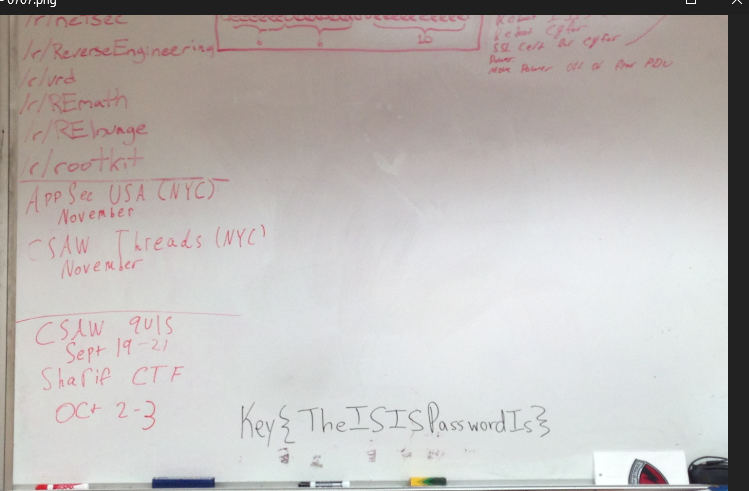 0707.png
/r/netsec
/r/ReverseEngineering
/r/vrd
/r/REmath
/r/RElounge
/r/rootkit
AppSec USA (NYC)
November
CSAW Threads (NYC)
November
CSAW quls
Sept 19-21
Sharif CTF
Oct 2-3
10
SSL Cert for cyfor
Power
Key{TheISISPasswordIs}